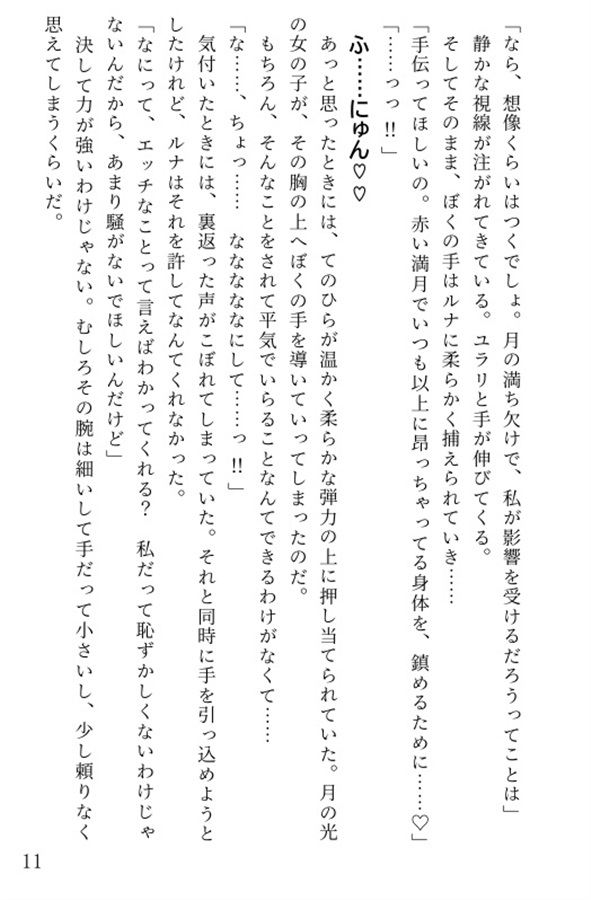 「なら、想像くらいはつくでしょ。月の満ち欠けで、私が影響を受けるだろうってことは」
静かな視線が注がれてきている。ユラリと手が伸びてくる。
そしてそのまま、ぼくの手はルナに柔らかく捕えられていき……
「手伝ってほしいの。赤い満月でいつも以上に昂っちゃってる身体を、鎮めるために……♡」
「……っっ!!」
ふ……にゅん♡♡
あっと思ったときには、てのひらが温かく柔らかな弾力の上に押し当てられていた。月の光
の女の子が、その胸の上へぼくの手を導いていってしまったのだ。
もちろん、そんなことをされて平気でいらることなんてできるわけがなくて……
「な……、ちょっ……　なななななにして……っ!!」
気付いたときには、裏返った声がこぼれてしまっていた。それと同時に手を引っ込めようと
したけれど、ルナはそれを許してなんてくれなかった。
「なにって、エッチなことって言えばわかってくれる?　私だって恥ずかしくないわけじゃ
ないんだから、あまり騒がないでほしいんだけど」
決して力が強いわけじゃない。むしろその腕は細いして手だって小さいし、少し頼りなく
思えてしまうくらいだ。
11